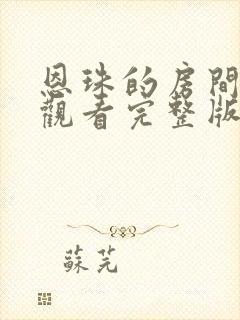 恩珠的房間
觀看完整版
蘇芫